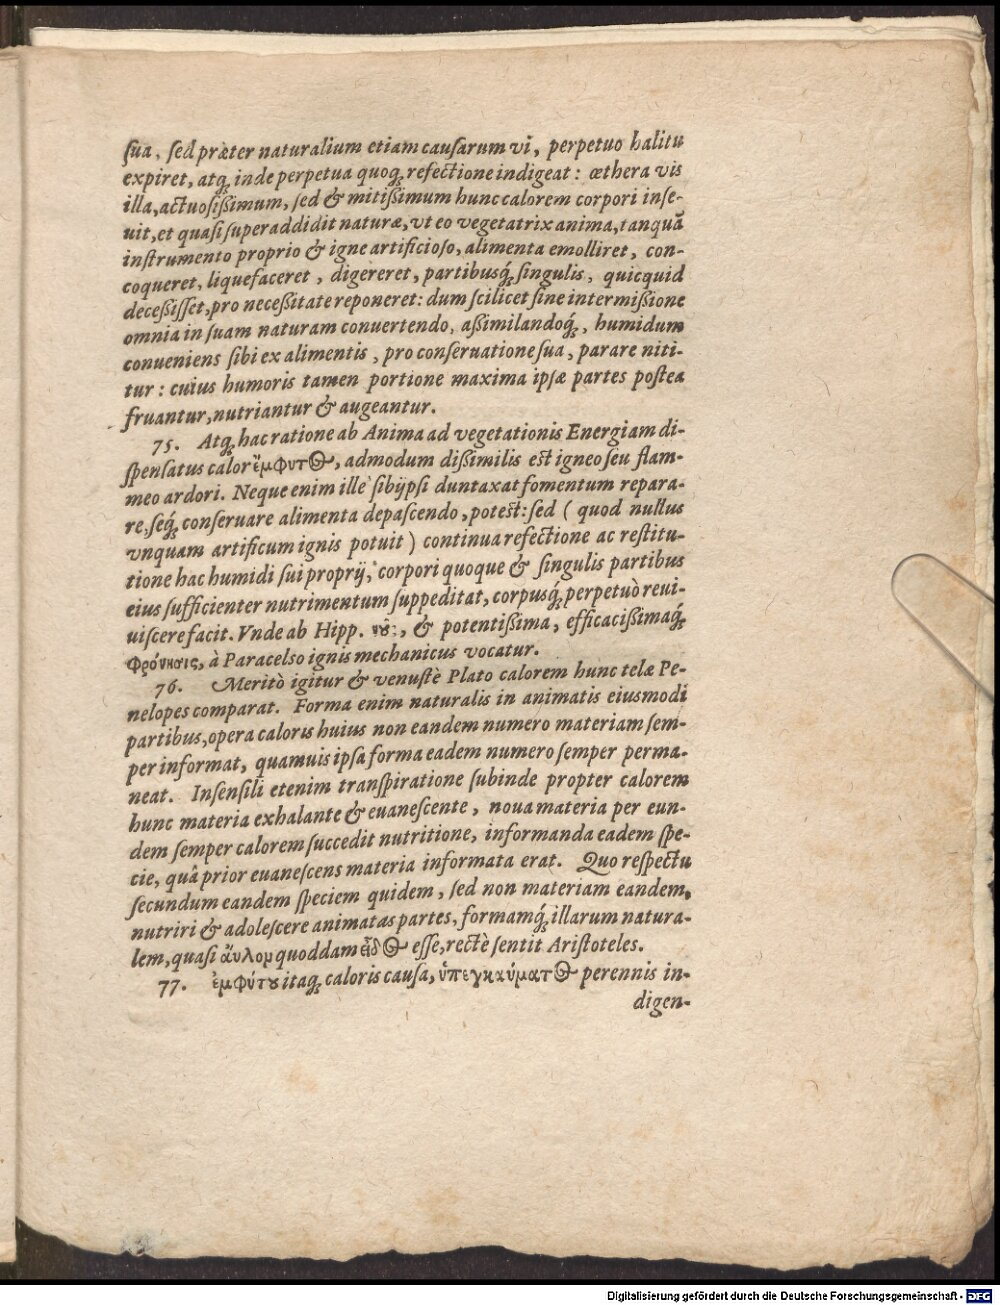 ſua, ſed præter naturalium etiam cauſarum vi, perpetuo halitu
expiret, atq́ꝫ inde perpetua quoq́ꝫ refectione indigeat: æthera vis
illa, actuoſiſſimum, ſed & mitiſſimum hunc calorem corpori inſe-
uit, et quaſi ſuperaddidit naturæ, vt eo vegetatrix anima, tanquā
inſtrumento proprio & igne artificioſo, alimenta emolliret, con-
coqueret, liquefaceret, digereret, partibusq́ꝫ ſingulis, quicquid
deceßiſſet, pro neceßitate reponeret: dum ſcilicet ſine intermißione
omnia in ſuam naturam conuertendo, aßimilandoq́ꝫ, humidum
conueniens ſibi ex alimentis, pro conſeruatione ſua, parare niti-
tur: cuius humoris tamen portione maxima ipſæ partes poſtea
fruantur, nutriantur & augeantur.
75. Atq́ꝫ hac ratione ab Anima ad vegetationis Energiam di-
ſpenſatus calor ἔμφυτ&, admodum dißimilis est igneo ſeu flam-
meo ardori. Neque enim ille ſibijpſi duntaxat fomentum repara-
re, ſeq́ꝫ conſeruare alimenta depaſcendo, potest: ſed ( quod nullus
vnquam artificum ignis potuit ) continua refectione ac reſtitu-
tione hac humidi ſui proprij, corpori quoque & ſingulis partibus
eius ſufficienter nutrimentum ſuppeditat, corpusq́ꝫ perpetuò reui-
uiſcere facit. Vnde ab Hipp. νȣ͂ς, & potentißima, efficacißimaq́ꝫ
φρόνησις, à Paracelso ignis mechanicus vocatur.
76. Meritò igitur & venuſtè Plato calorem hunc telæ Pe-
nelopes comparat. Forma enim naturalis in animatis eiusmodi
partibus, opera caloris huius non eandem numero materiam ſem-
per informat, quamuis ipſa forma eadem numero ſemper perma-
neat. Inſenſili etenim tranſpiratione ſubinde propter calorem
hunc materia exhalante & euaneſcente, noua materia per eun-
dem ſemper calorem ſuccedit nutritione, informanda eadem ſpe-
cie, quâ prior euaneſcens materia informata erat. Quo reſpectu
ſecundum eandem ſpeciem quidem, ſed non materiam eandem,
nutriri & adoleſcere animatas partes, formamq́ꝫ illarum natura-
lem, quaſi ἄυλον quoddam εἶδος eſſe, rectè ſentit Ariſtoteles.
77. ἐμφύτȣ itaq́ꝫ caloris cauſa, ὑπεγκαύματος perennis in-
digen-
Digitalisierung gefördert durch die Deutsche Forschungsgemeinschaft - DFG